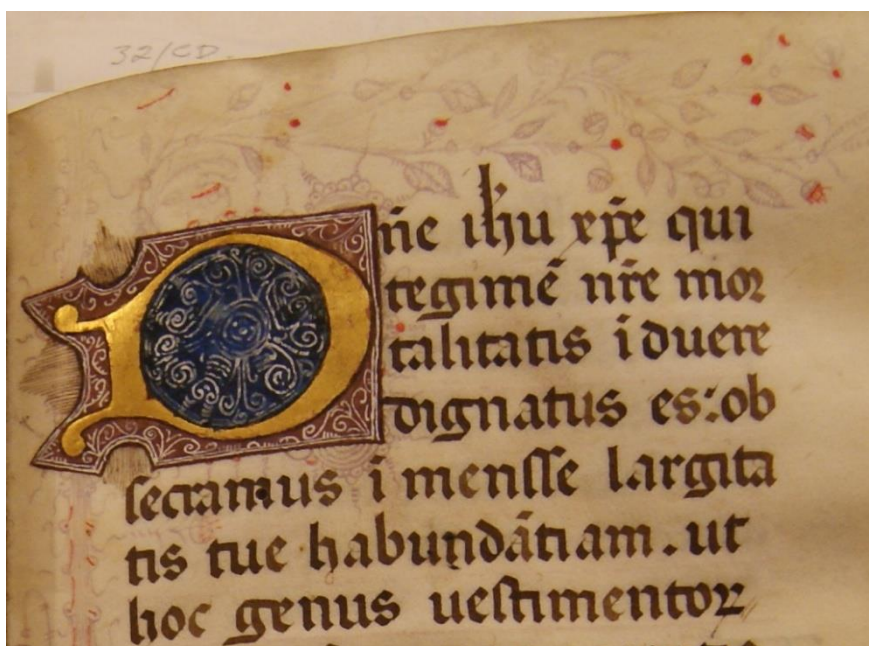 32/CD
Dn̄e ih̄u xp̄e qui
tegimē nr̄e mor
talitatis īduere
dignatus es: ob
secramus īmensse largita
tis tue habundātiam. ut
hoc genus uestimentoꝝ